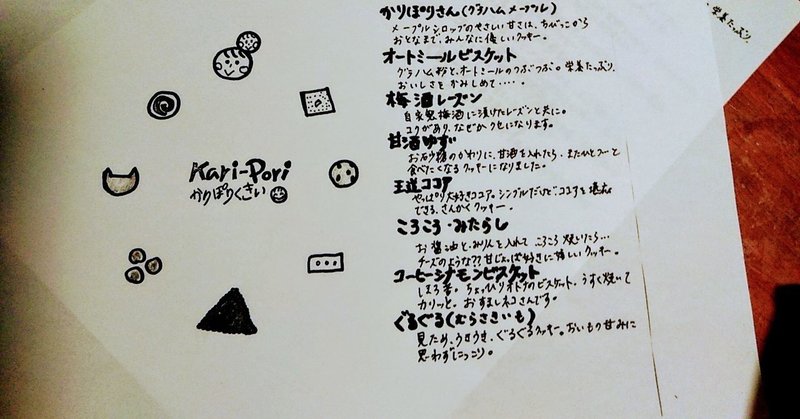 Kari-Pori
かりぽりくさい
かりぽりさん(グラハムメープル)
メープルシロップのやさしい甘さは、ちびっこから
おとなまで、みんなに優しいクッキー。
オートミールビスケット
グラハム粉と、オートミールのつぶつぶ。栄養たっぷり、
おいしさをかみしめて・・・・。
梅酒レーズン
自家製梅酒に漬けたレーズンと共に。
コクがあり、なぜかクセになります。
甘酒ゆず
お砂糖のかわりに、甘酒を入れたら、またひと
食べたくなるクッキーになりました。
王道ココア
やっぱり大好きココア。シンプルだけどココアを
できる、さんかくクッキー。
ころころ・みたらし
お醤油とみりんを入れて ころころ 焼いたら…
チーズのような??甘じょっぱ好きに嬉しいクッキー。
コーヒーシナモンビスケット
ほろ苦。ちょっぴりオトナのビスケット。うすく焼いて
カリッと。おすましネコさんです。
ぐるぐる(むらさきいも)
見ため、ウロウロ、ぐるぐるクッキー。おいもの甘みに
思わずにっこり。
栄養たっぷり、